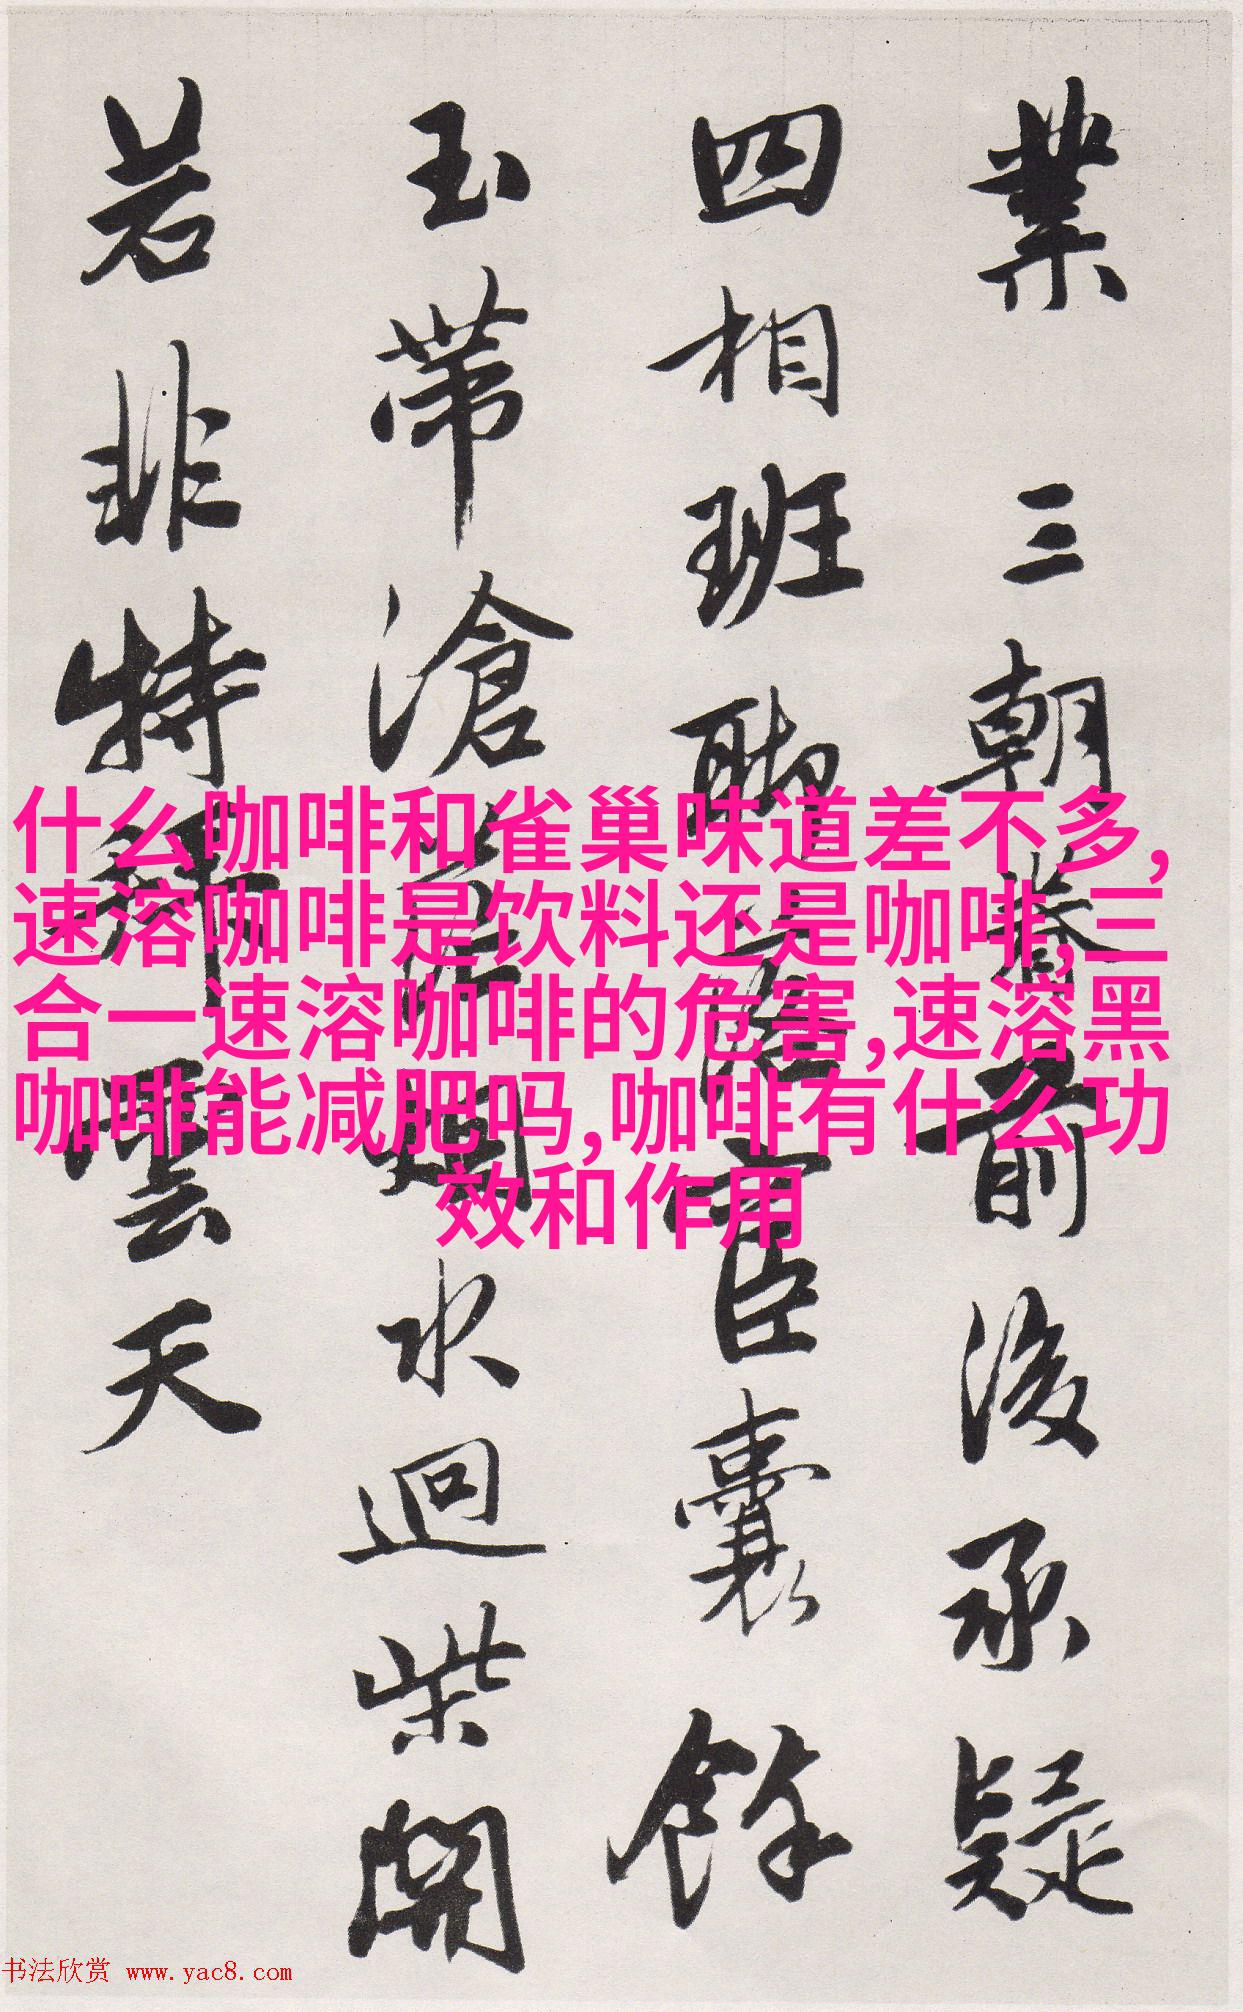 業三朝眷前後承疑
四相班聯臣囊餘
玉帶滄茫烟水迴柴開
若非特雲天
什么咖啡和雀巢味道差不多,
速溶咖啡是饮料还是咖啡,三
合一速溶咖啡的危害,速溶黑
咖啡能减肥吗,咖啡有什么功
效和作用
书法欣赏 www.yac8.com